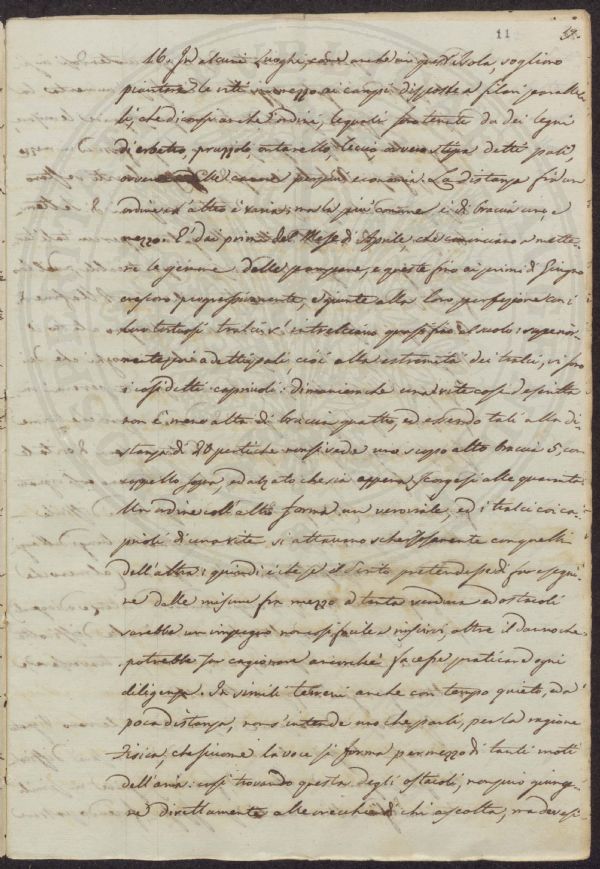 11
16. In alcuni Luoghi, come anche in quest'Isola sogliono
piantare le viti in mezzo ai campi disposte a filari paralle-
li, che diconsi anche Ordini, le quali sostenute da dei legni
di erbetro, prazzolo, ontanello, leccio ovvero stipa detti pali,
ovvero delle canne per più economia. La distanza fra un
ordine ed altro è varia; ma la più comune è di braccia uno, e
mezzo. È dai primi del Mese di Aprile, che cominciano a mette-
re le gemme dalle pampane, e queste fino ai primi di Giugno
crescono progressivamente, e giunte alla loro perfezione con i
loro tortuosi tralci s'intrecciano quasi fino al suolo: superior-
mente poi a detti pali, cioè alla estremità dei tralci, vi sono
i così detti capriuoli: dimanierachè una vite così descritta
non è meno alta di braccia quattro, ed essendo tali alla di-
stanza di 20 pertiche non si vede uno scopo alto braccia 5, con
cappello sopra, ed alzato che sia appena scorgesi alle quaranta.
Un ordine coll'altro forma un veroviale, ed i tralci coi ca-
prioli di una vite si attraveno scherzosamente con quelli
dell'altra: quindi è che se il Perito pretendesse di fare esegui-
re delle misure fra mezzo a tanta verdura ed ostacoli
sarebbe un impegno non così facile a riuscirvi, oltre il danno che
potrebbe per cagionare ancorchè facesse praticare ogni
diligenza. In simili terreni anche con tempo quieto, ed a
poca distanza, non s'intende uno che parli, per la ragione
Fisica, che siccome la voce si forma per mezzo di tanti moti
dell'aria: così trovando questa degli ostacoli, non può giunge-
re direttamente alle orecchie di chi ascolta, ma devesi